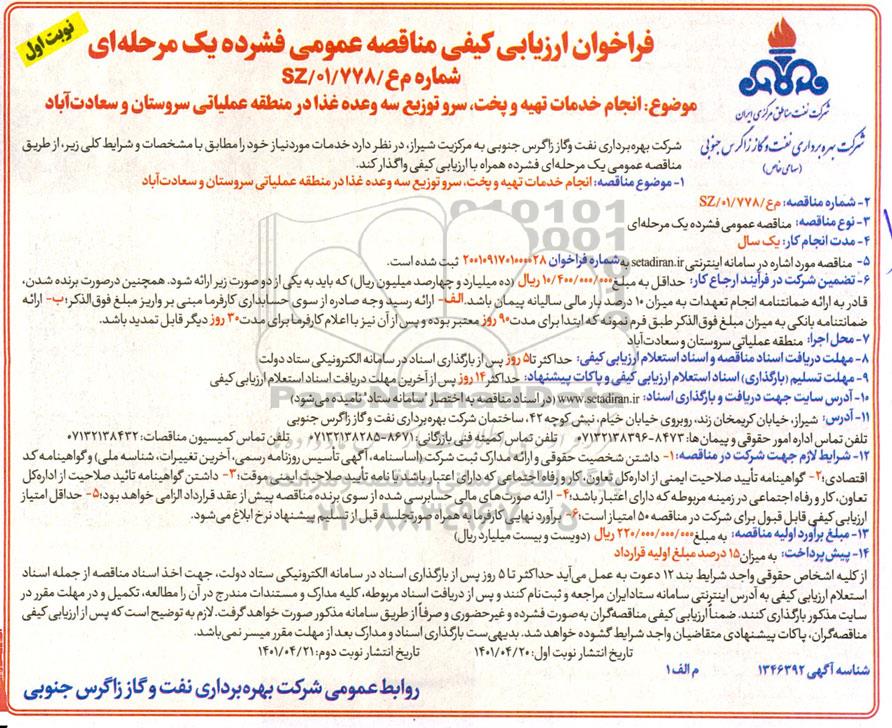 نوبت اول
فراخوان ارزیابی کیفی مناقصه عمومی فشرده یک مرحله‌ای
شماره م ع/SZ/۰۱/۷۷۸
موضوع: انجام خدمات تهیه و پخت، سرو توزیع سه وعده غذا در منطقه عملیاتی سروستان و سعادت‌آباد
شرکت نفت مناطق مرکزی ایران
شرکت بهره برداری نفت و گاز زاگرس جنوبی
(سهامی خاص)
شرکت بهره‌برداری نفت وگاز زاگرس جنوبی به مرکزیت شیراز، در نظر دارد خدمات موردنیاز خود را مطابق با مشخصات و شرایط کلی زیر، از طریق
مناقصه عمومی یک مرحله‌ای فشرده همراه با ارزیابی کیفی واگذار کند.
۱- موضوع مناقصه: انجام خدمات تهیه و پخت، سرو توزیع سه وعده غذا در منطقه عملیاتی سروستان و سعادت‌آباد
۲- شماره مناقصه: م ع/SZ/۰۱/۷۷۸
۳- نوع مناقصه: مناقصه عمومی فشرده یک مرحله‌ای
۴- مدت انجام کار: یک سال
۵- مناقصه مورد اشاره در سامانه اینترنتی setadiran.ir به شماره فراخوان ۲۰۰۱۰۹۱۷۰۱۰۰۰۰۲۸ ثبت شده است.
۶- تضمین شرکت در فرآیند ارجاع کار: حداقل به مبلغ ۱۰/۴۰۰/۰۰۰/۰۰۰ ریال (ده میلیارد و چهارصد میلیون ریال) که باید به یکی از دو صورت زیر ارائه شود. همچنین درصورت برنده شدن،
قادر به ارائه ضمانتنامه انجام تعهدات به میزان ۱۰ درصد بار مالی سالیانه پیمان باشد. الف- ارائه رسید وجه صادره از سوی حسابداری کارفرما مبنی بر واریز مبلغ فوق‌الذکر؛ ب- ارائه
ضمانتنامه بانکی به میزان مبلغ فوق‌الذکر طبق فرم نمونه که ابتدا برای مدت ۹۰ روز معتبر بوده و پس از آن نیز با اعلام کارفرما برای مدت ۳۰ روز دیگر قابل تمدید باشد.
۷- محل اجرا: منطقه عملیاتی سروستان و سعادت‌آباد
۸- مهلت دریافت اسناد مناقصه و اسناد استعلام ارزیابی کیفی: حداکثر تا ۵ روز پس از بارگذاری اسناد در سامانه الکترونیکی ستاد دولت
۹- مهلت تسلیم (بارگذاری) اسناد استعلام ارزیابی کیفی و پاکات پیشنهاد: حداکثر ۱۴ روز پس از آخرین مهلت دریافت اسناد استعلام ارزیابی کیفی
۱۰- آدرس سایت جهت دریافت و بارگذاری اسناد: www.setadiran.ir (در اسناد مناقصه به اختصار "سامانه ستاد" نامیده می‌شود)
۱۱- آدرس: شیراز، خیابان کریمخان زند، روبروی خیابان خیام، نبش کوچه ۴۲، ساختمان شرکت بهره‌برداری نفت و گاز زاگرس جنوبی
تلفن تماس اداره امور حقوقی و پیمان‌ها: ۸۴۷۳-۰۷۱۳۲۱۳۸۳۹۶ تلفن تماس کمیته فنی بازرگانی: ۸۶۷۱-۰۷۱۳۲۱۳۸۲۸۵ تلفن تماس کمیسیون مناقصات: ۰۷۱۳۲۱۳۸۴۳۲
۱۲- شرایط لازم جهت شرکت در مناقصه: ۱- داشتن شخصیت حقوقی و ارائه مدارک ثبت شرکت (اساسنامه، آگهی تأسیس روزنامه رسمی، آخرین تغییرات، شناسه ملی) و گواهینامه کد
اقتصادی؛ ۲- گواهینامه تأیید صلاحیت ایمنی از اداره‌کل تعاون، کار و رفاه اجتماعی که دارای اعتبار باشد یا نامه تأیید صلاحیت ایمنی موقت؛ ۳- داشتن گواهینامه تائید صلاحیت از اداره‌کل
تعاون، کار و رفاه اجتماعی در زمینه مربوطه که دارای اعتبار باشد؛ ۴- ارائه صورت‌های مالی حسابرسی شده از سوی برنده مناقصه پیش از عقد قرارداد الزامی خواهد بود؛ ۵- حداقل امتیاز
ارزیابی کیفی قابل قبول برای شرکت در مناقصه ۵۰ امتیاز است؛ ۶- برآورد نهایی کارفرما به همراه صورتجلسه قبل از تسلیم پیشنهاد نرخ ابلاغ می‌شود.
۱۳- مبلغ برآورد اولیه مناقصه: به مبلغ ۲۲۰/۰۰۰/۰۰۰/۰۰۰ ریال (دویست و بیست میلیارد ریال)
۱۴- پیش‌پرداخت: به میزان ۱۵ درصد مبلغ اولیه قرارداد
از کلیه اشخاص حقوقی واجد شرایط بند ۱۲ دعوت به عمل می‌آید حداکثر تا ۵ روز پس از بارگذاری اسناد در سامانه الکترونیکی ستاد دولت، جهت اخذ اسناد مناقصه از جمله اسناد
استعلام ارزیابی کیفی به آدرس اینترنتی سامانه ستاد ایران مراجعه و ثبت‌نام کنند و پس از دریافت اسناد مربوطه، کلیه مدارک و مستندات مندرج در آن را مطالعه، تکمیل و در مهلت مقرر در
سایت مذکور بارگذاری کنند. ضمناً ارزیابی کیفی مناقصه‌گران به‌صورت فشرده و غیرحضوری و صرفاً از طریق سامانه مذکور صورت خواهد گرفت. لازم به توضیح است که پس از ارزیابی کیفی
مناقصه‌گران، پاکات پیشنهادی متقاضیان واجد شرایط گشوده خواهد شد. بدیهی‌ست بارگذاری اسناد و مدارک بعد از مهلت مقرر میسر نمی‌باشد.
تاریخ انتشار نوبت اول: ۱۴۰۱/۰۴/۲۰ تاریخ انتشار نوبت دوم: ۱۴۰۱/۰۴/۲۱
شناسه آگهی ۱۳۴۶۳۹۲ م الف ۱
روابط عمومی شرکت بهره‌برداری نفت و گاز زاگرس جنوبی